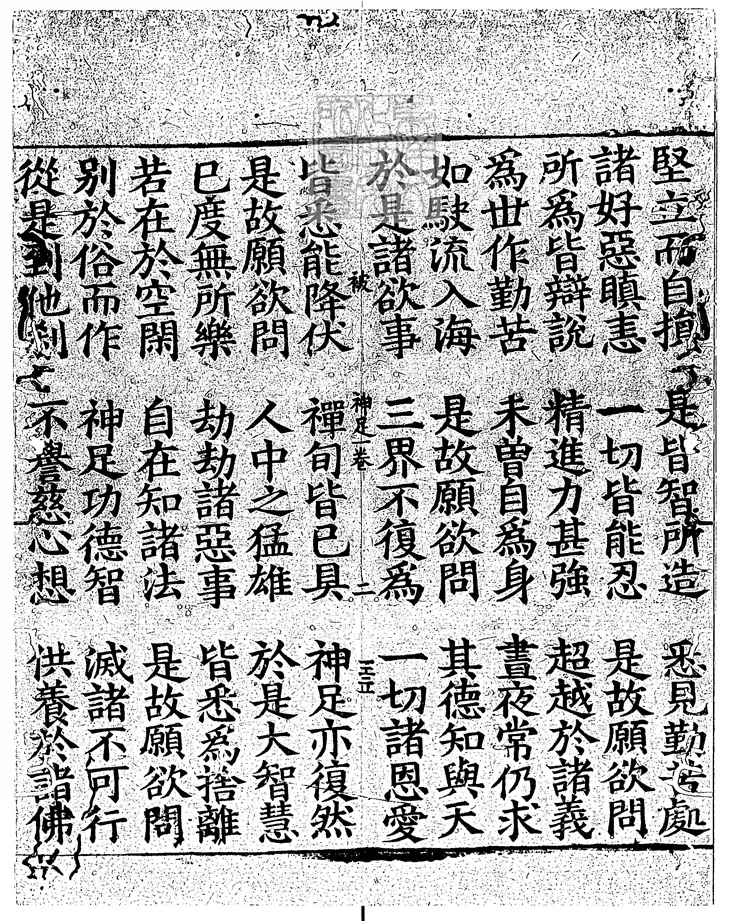 堅立而自　是皆智所造　悉見勤苦處
諸好惡瞋恚　一切皆能忍　是故願欲問
所爲皆辯說　精進力甚強　超越於諸義
爲世作勤苦　未曾自爲身　晝夜常仍求
如駛流入海　是故願欲問　其德知與天
於是諸欲事　三界不復爲　一切諸恩愛
被　神足一卷　二
皆悉能降伏　禪旬皆已具　神足亦復然
是故願欲問　人中之猛雄　於是大智慧
已度無所樂　劫劫諸惡事　皆悉爲捨離
若在於空閑　自在知諸法　是故願欲問
別於俗而作　神足功德智　滅諸不可行
從是到他剎　不譽慈心想　洪養於諸佛